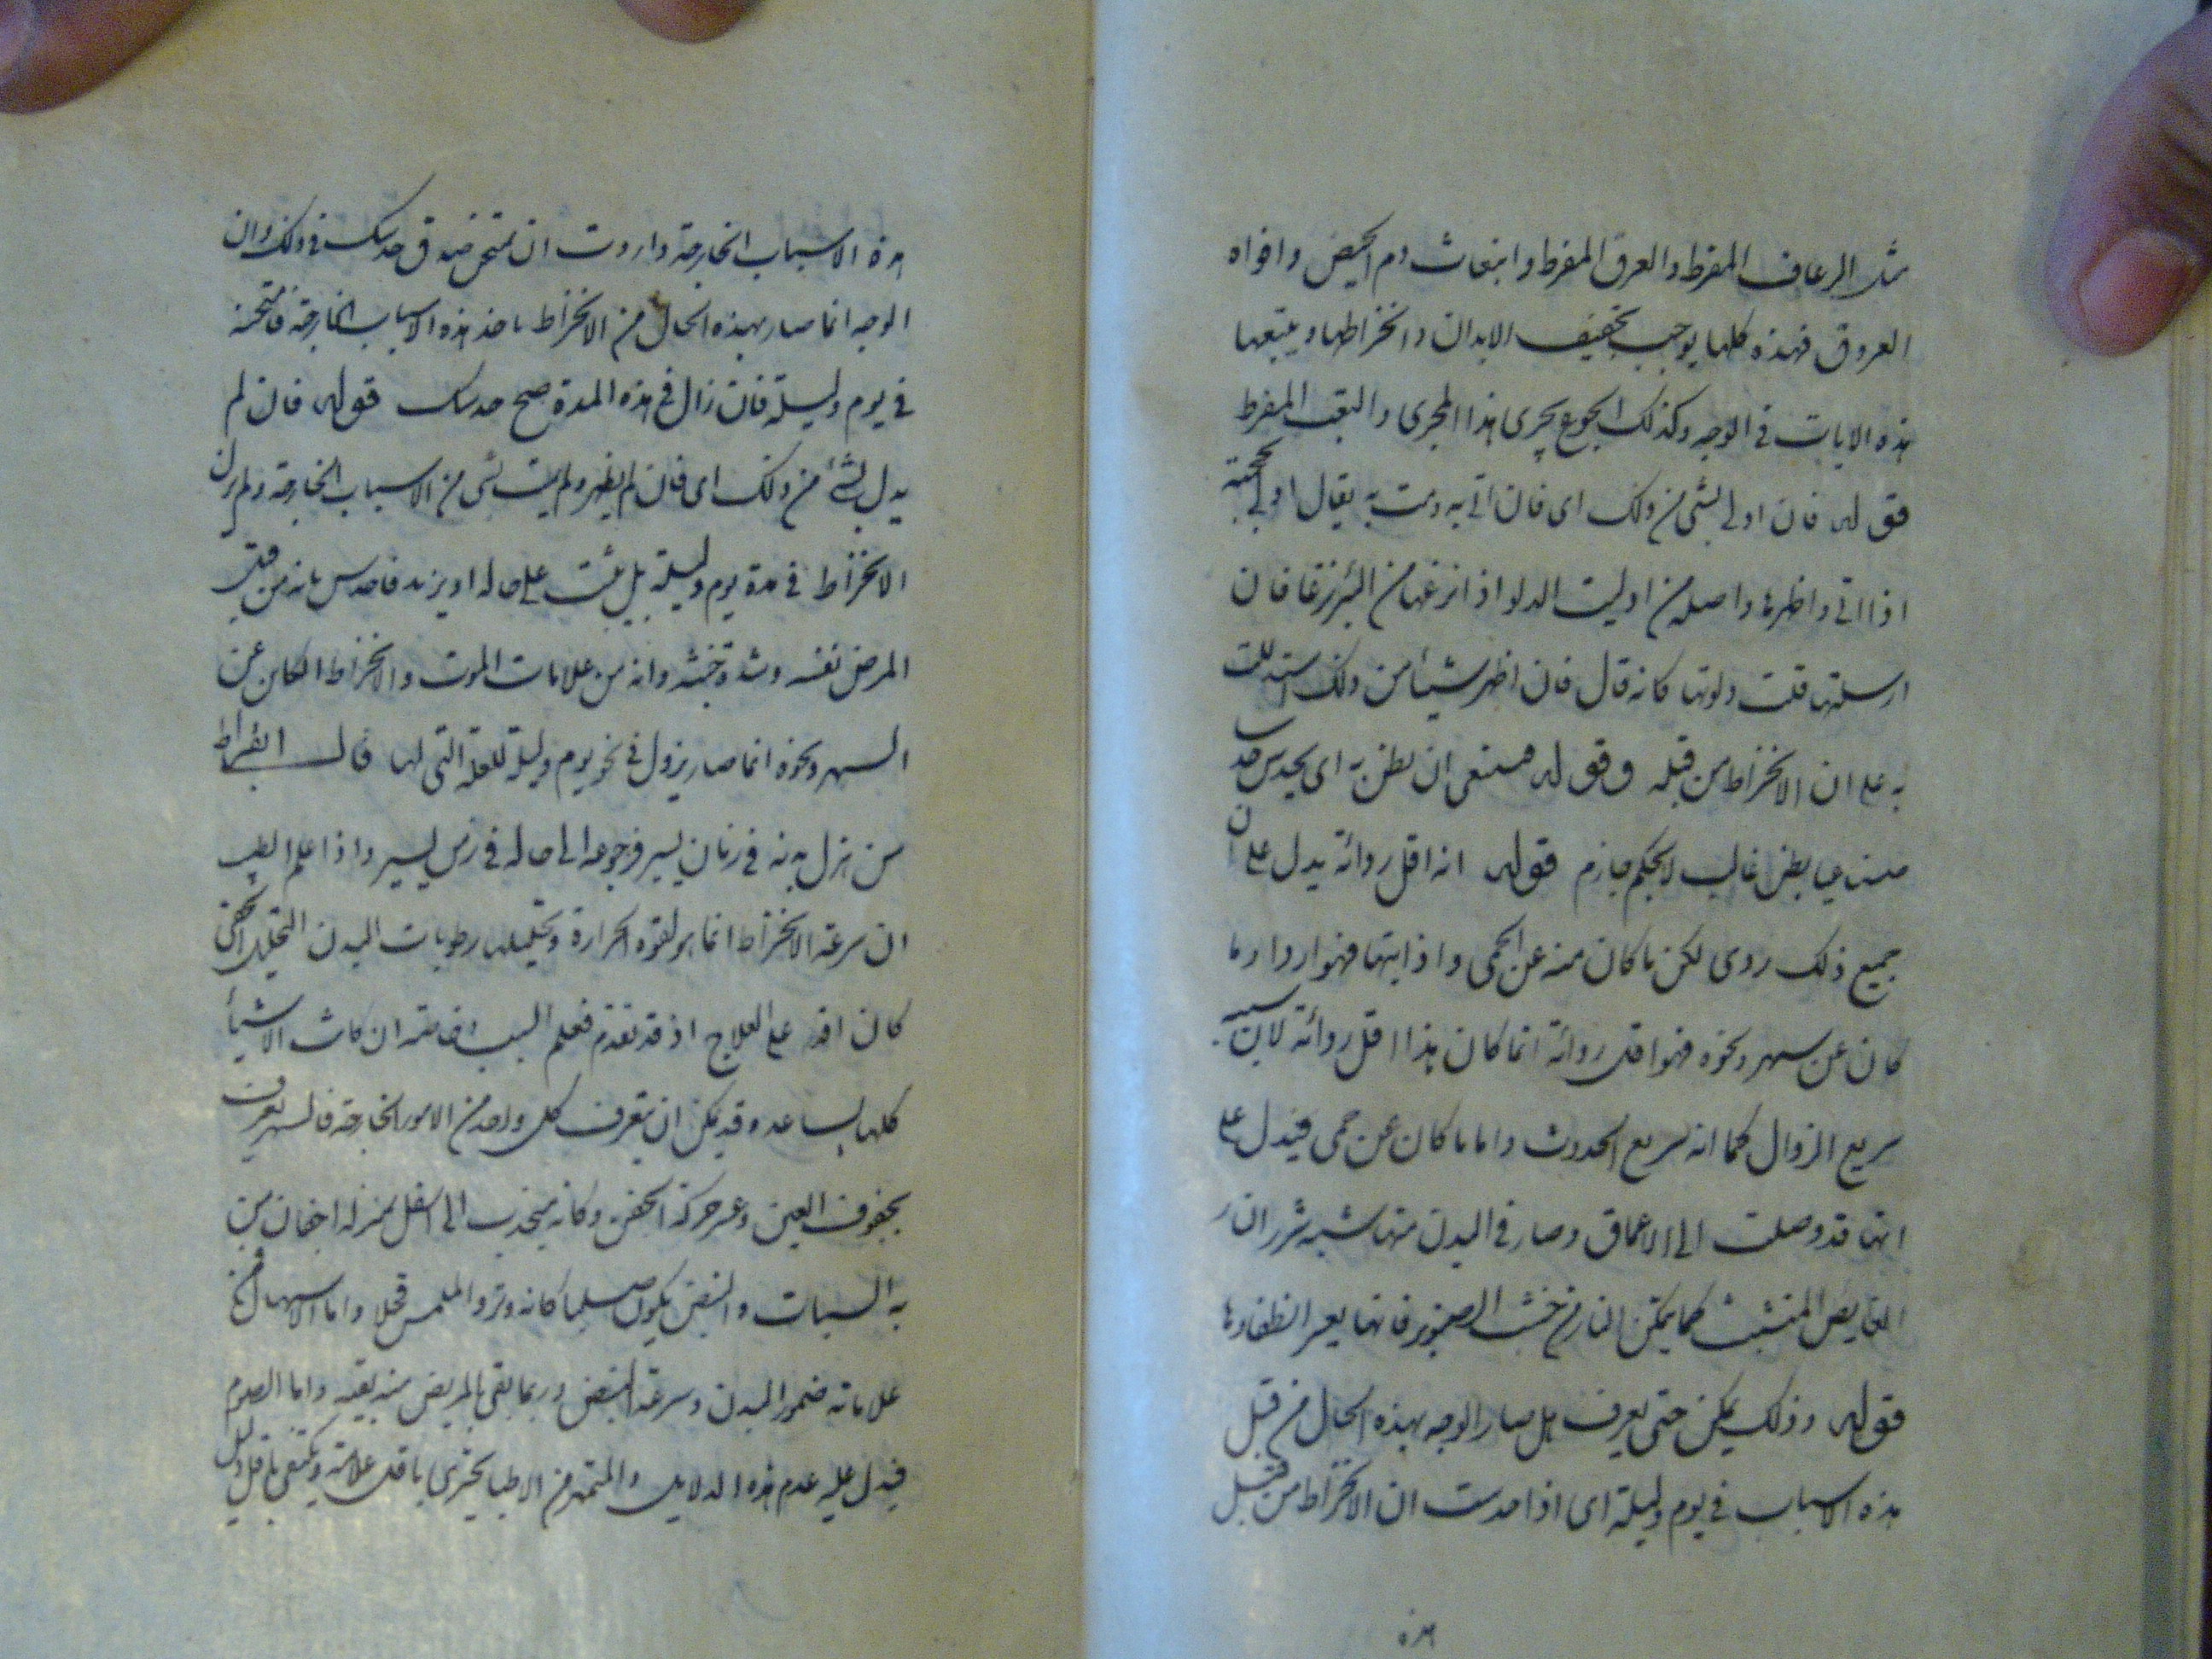 مثل الرعاف المفرط والعرق المفرط وانبعاث دم الحيض وافواه
العروق فهذه كلها يوجب تجفيف الابدان وانخراطها ويتبعها
هذه الايات في الوجه وكذلك الجوع يجرى هذا المجرى والتعب المفرط
قوله فان اولى بشى من ذلك اى فان اتى به ومت به يقال اولى بحجته
اذا اتى واظهرها واصله من اوليت الدلو اذا نزعتها من البئر نزعا فان
ارسلتها قلت دلوتها كانه قال فان اظهر شيئا من ذلك استدللت
به على ان الانخراط من قبله وقوله فينبغى ان يظن به اى يحدس حدسا
بظن غالب لا بحكم جازم قوله انه اقل رداءة يدل على ان
جميع ذلك ردى لكن ما كان منه عن الحمى واذابتها فهو اردا وما
كان عن سهر ونحوه فهو اقل رداءة انما كان هذا اقل رداءة لان سببه
سريع الزوال كما انه سريع الحدوث واما ما كان عن حمى فيدل على
انها قد وصلت الى الاعماق وصار في البدن منها شبيه شرر النار
الغايص المتشبث كما يمكن النار من خشب الصنوبر فانها يعسر انطفاوها
قوله وذلك يمكن حتى يعرف هل صار الوجه بهذه الحال من قبل
هذه الاسباب في يوم وليلة اى اذا حدست ان الانخراط من قبل
هذه
هذه الاسباب الخارجة واردت ان تمتحن صدق حدسك في ذلك وان
الوجه انما صار بهذه الحال من الانخراط باحد هذه الاسباب الخارجة فامتحنه
في يوم وليلة فان زال في هذه المدة صح حدسك قوله فان لم
يدل بشئ من ذلك اى فان لم يظهر ولم يمت بشى من الاسباب الخارجة ولم يزل
الانخراط في مدة يوم وليلة بل ثبت على حاله او يزيد فاحدس بانه من قبل
المرض نفسه وشدة خبثه وانه من علامات الموت والانخراط الكاين عن
السهر ونحوه انما صار يزول في نحو يوم وليلة للعلة التى لها قال ابقراط
من نزل بدنه في زمان يسير فرجوعه الى حاله في زمن يسير واذا علم الطبيب
ان سرعة الانخراط انما هو لقوة الحرارة وتحليلها رطوبات البدن التحليل الخفى
كان اقدر على العلاج اذ قد تقدم فعلم السبب خاصة ان كانت الاشياء
كلها يساعده وقد يمكن ان يتعرف كل واحد من الامور الخارجة فالسهر يعرف
بجفوف العين وعسر حركة الجفن وكانه ينجذب الى اسفل بمنزلة اجفان من
به السبات والنبض يكون صلبا كانه وتر والملمس قحلا واما الاسهال فمن
علاماته ضمور البدن وسرعة النبض وربما بقى بالمريض منه بقية واما الصوم
فيدل عليه عدم هذه الدلايل والمتمهر من الاطبا يجتزى باقل علامة ويكتفى باقل دليل